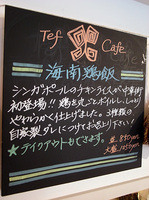 Tef Cafe
海南鶏飯
シンガポールのチキンライスが中華街
初登場!! 鶏を丸ごとボイルし、しっとり
やわらかく仕上げました。3種類の
自家製ダレにつけてお召上り下さい!
★テイクアウトもできます。
並. 850yen
大盛. 1050yen